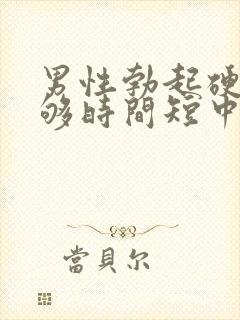 男性勃起硬
够時間短中
當貝尔